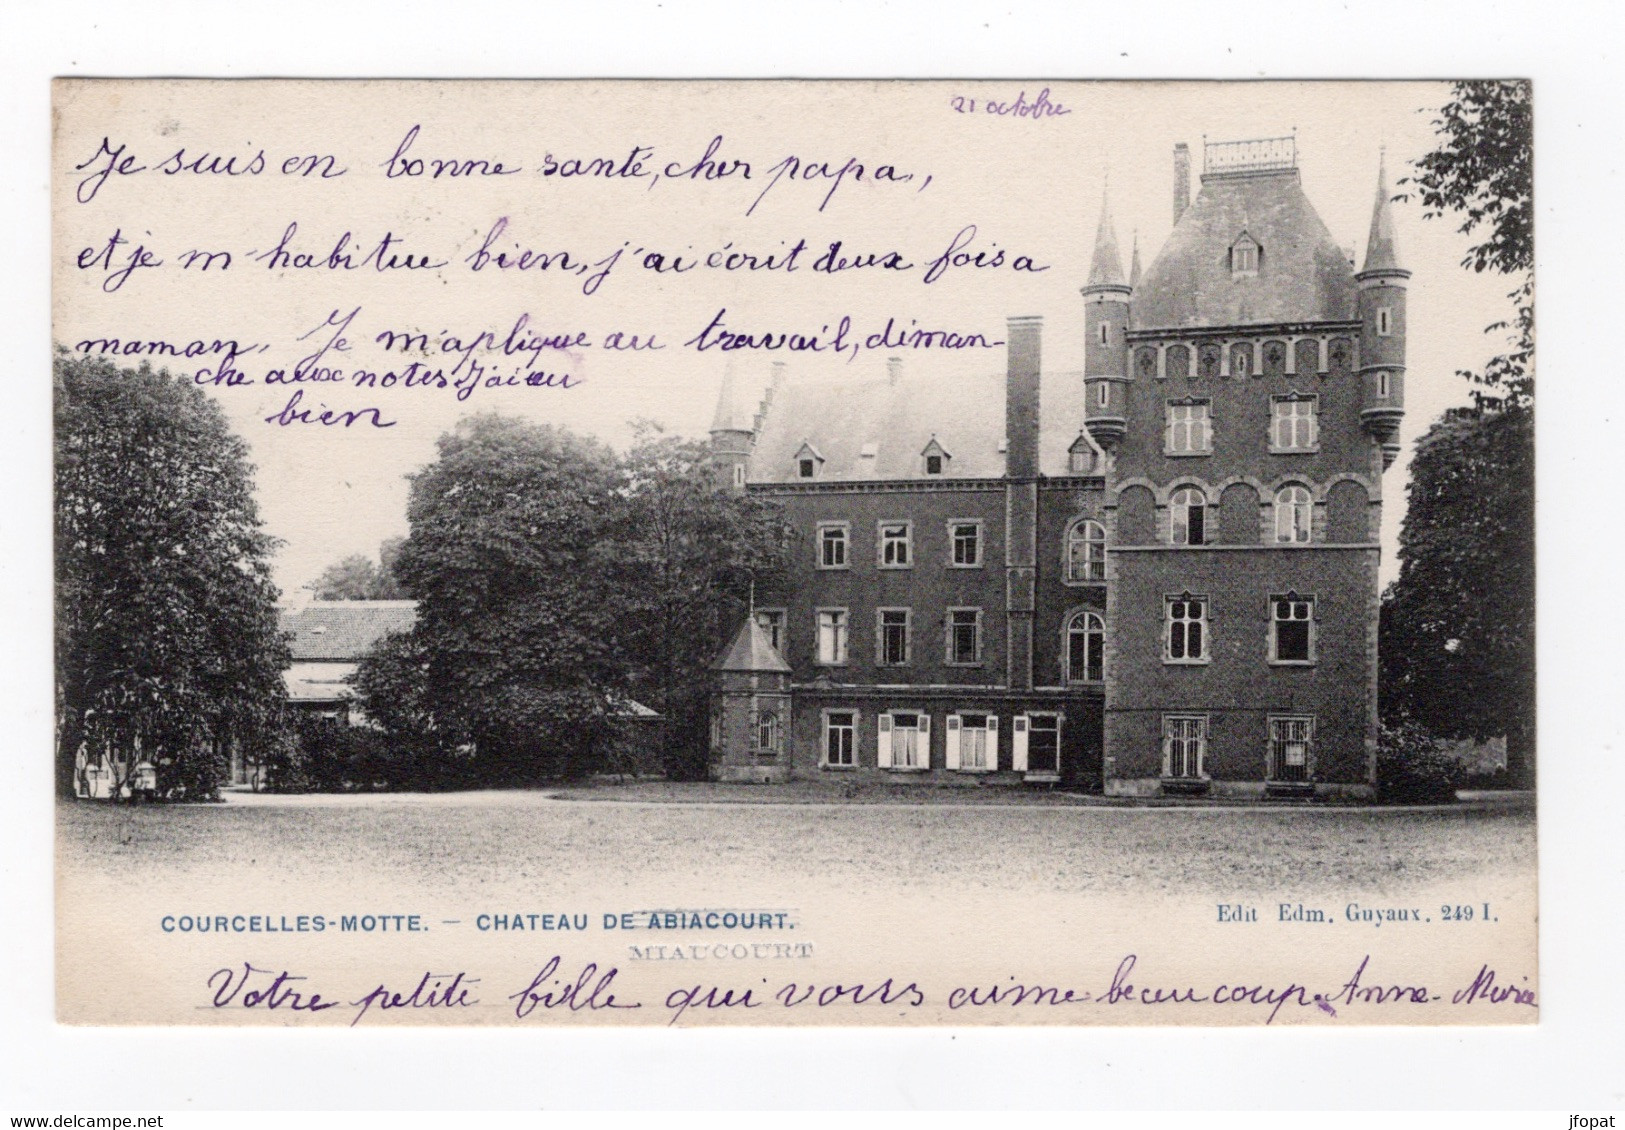 21 octobre
Je suis en bonne santé, cher papa,
et je m'habitue bien, j'ai écrit deux fois a
maman. Je m'aplique au travail, diman-
che aux notes J'ai eu
bien
COURCELLES-MOTTE. — CHATEAU DE ABIACOURT.
MIAUCOURT
Edit Edm. Guyaux. 249 I.
Votre petite fille qui vous aime beaucoup. Anne-Marie
delcampe.net
jfopat